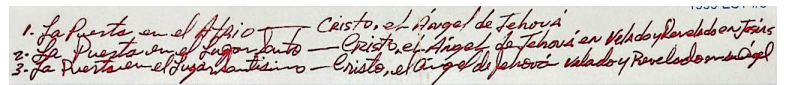 1. La Puerta en el Atrio — Cristo, el Ángel de Jehová
2. La Puerta en el Lugar Santo — Cristo, el Ángel de Jehová en Velado y Revelado en Jesús
3. La Puerta en el Lugar Santisimo — Cristo, el Angel de Jehová Velado y Revelado en su Ángel